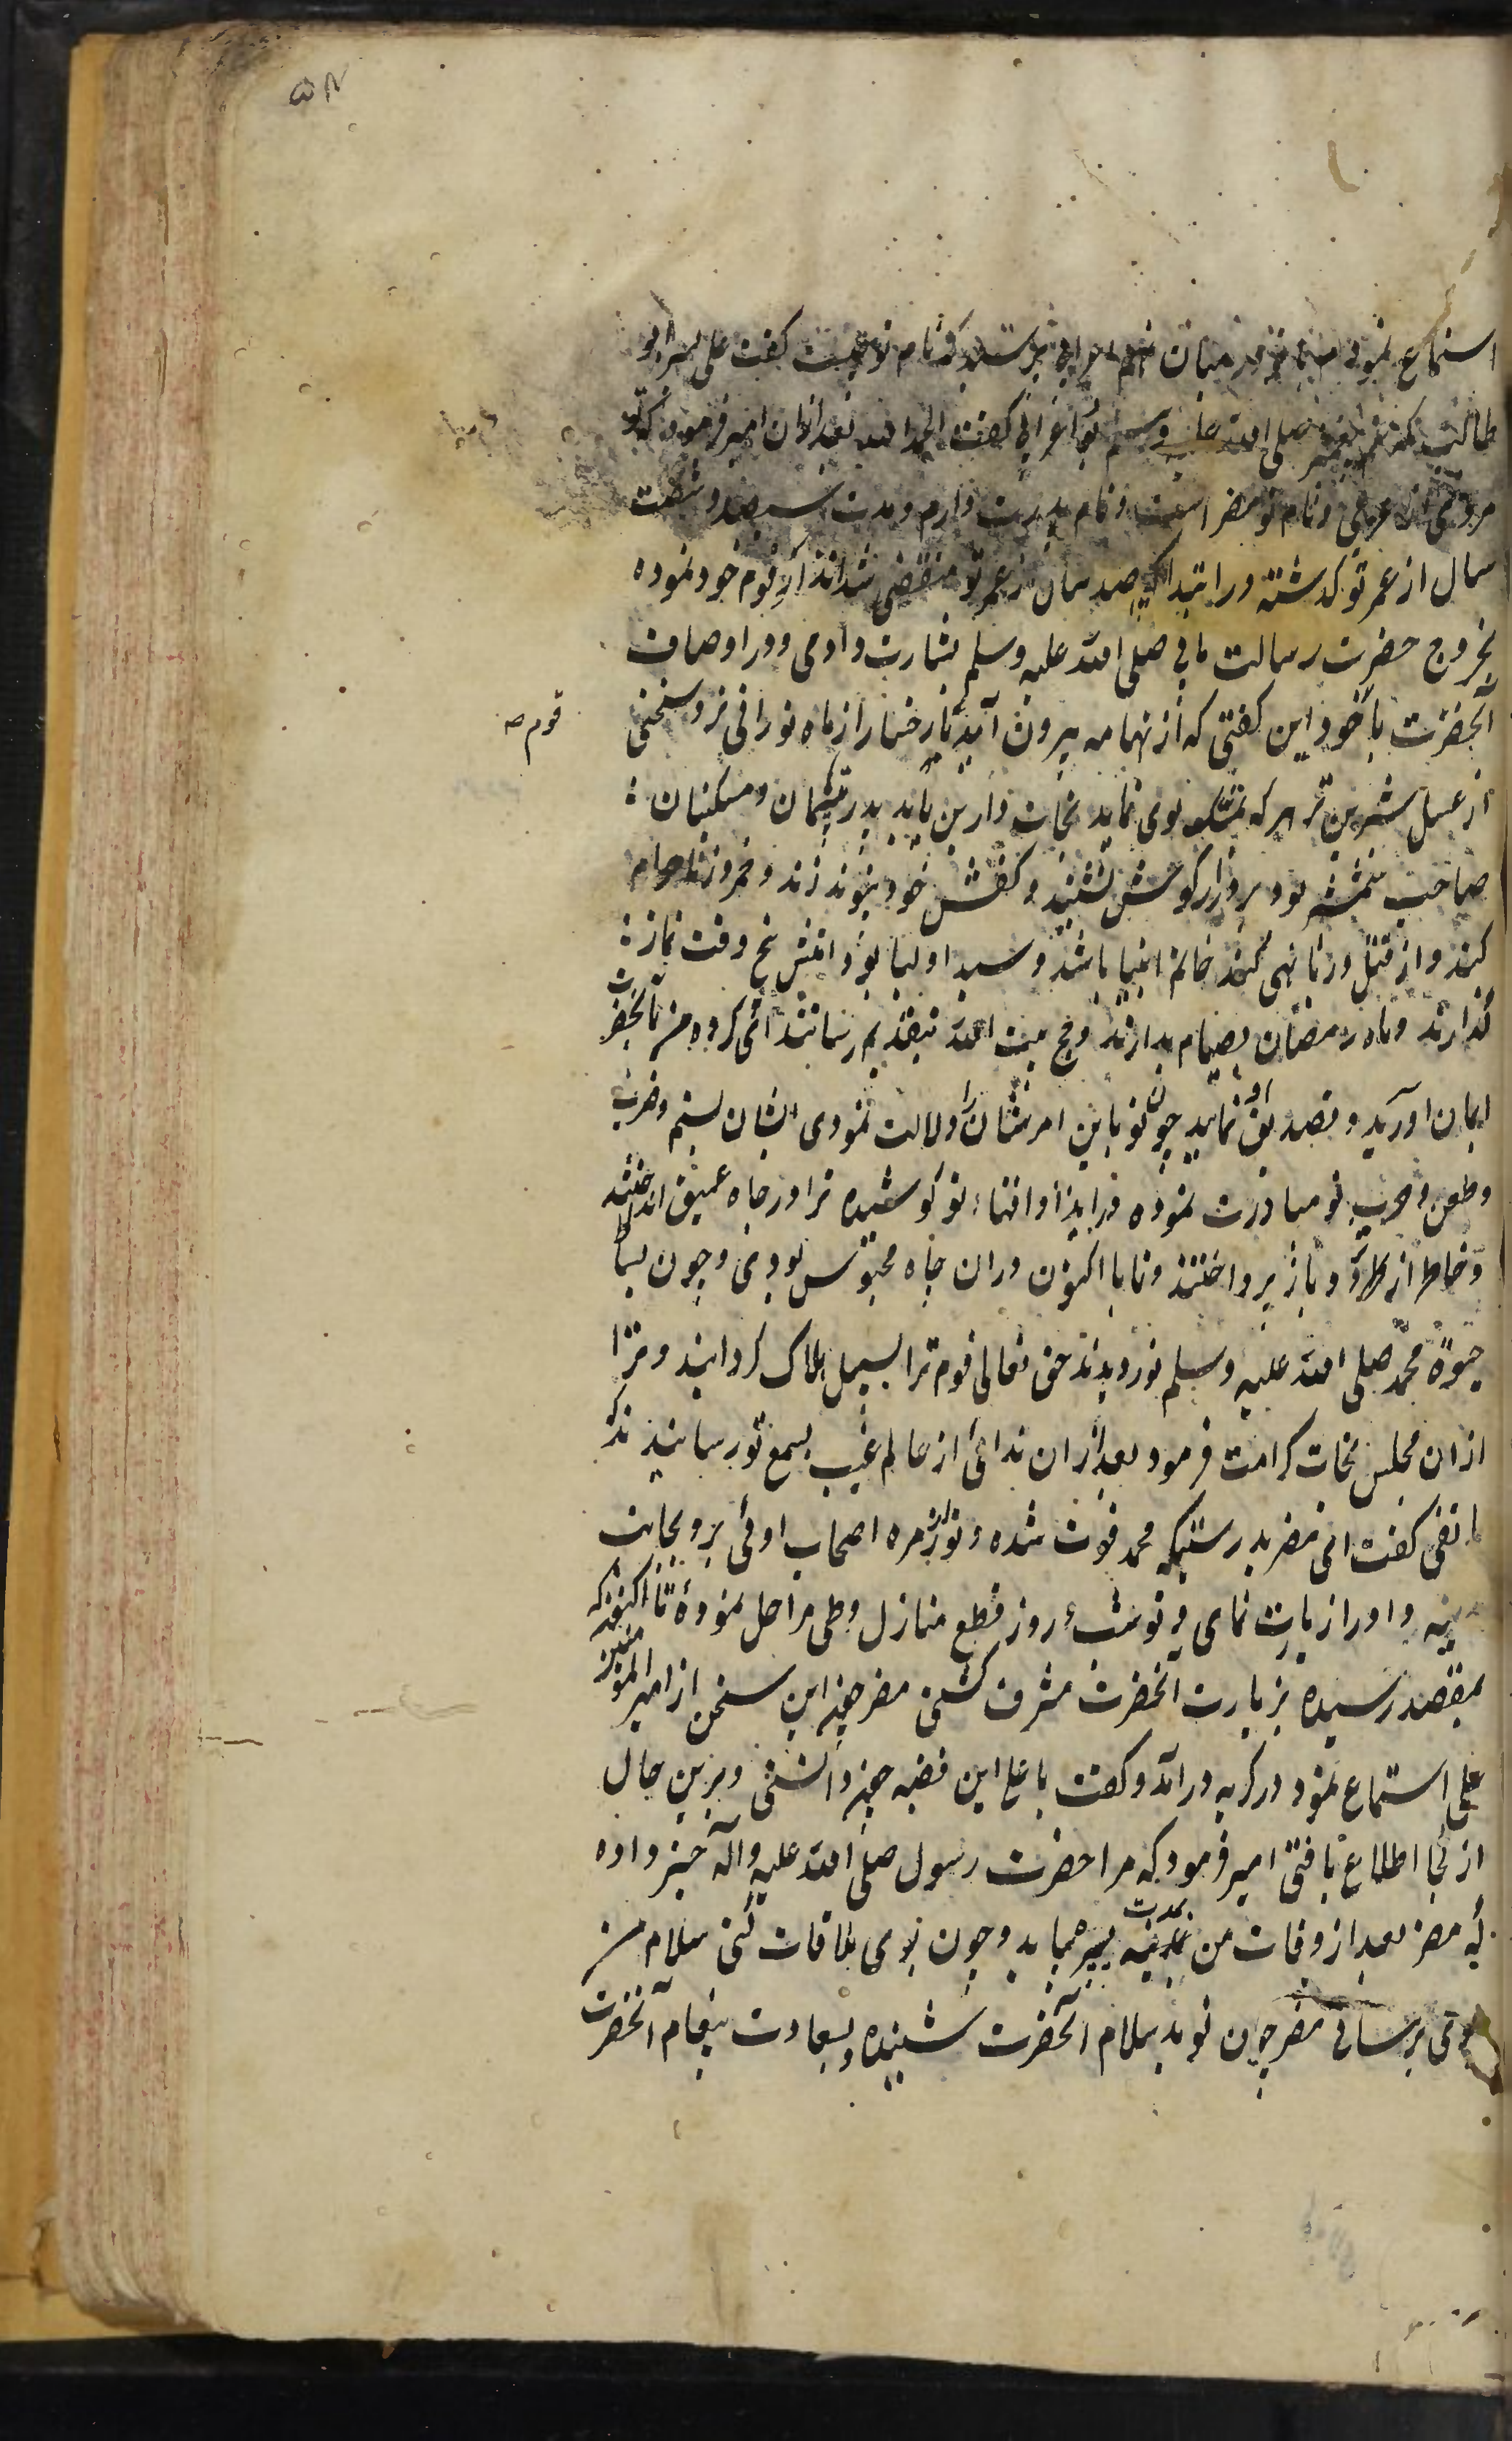 ۵۲
استماع نمودی میان اعرابی پرسید که نام تو چیست گفت علی پسر ابو
طالب صلی الله علیه وسلم اعرابی گفت الحمد لله بعد ازان امیر فرمود که تو
مردی از عربی و نام تو مضر است و نام پدرت دارم و مدت سیصد و شصت
سال از عمر تو گذشته در ابتدا که صد سال از عمر تو منقضی شد انذار قوم خود نموده
بخروج حضرت رسالت مابی صلی الله علیه وسلم بشارت دادی و در اوصاف
آنحضرت با خود این گفتی که از تهامه بیرون آید تا رخسار از ماه نورانی تر و سخنی
قوم صه
از عسل شیرین تر هر که تمسک بوی نماید نجات دارین یابد پدر یتیمان و مسکینان
صاحب شمشیر بود بر درازگوش نشیند و کفش خود پیوند زند و خمر و زنا حرام
کند و از قتل و زنا نهی کند خاتم انبیا باشد و سید اولیا بود امتش پنج وقت نماز
گذارند و ماه رمضان بصیام بدارند و حج بیت الله بتقدیم رسانند ای گروه من بآنحضرت
ایمان آورید و تصدیق او نمایید چون تو باین امر ایشان را دلالت نمودی ایشان بستم و ضرب
و طعن و حرب تو مبادرت نموده در ایذا و افناء تو کوشیده ترا در چاه عمیق انداختند
و خاطر از تو باز پرداختند و تا با اکنون دران چاه محبوس بودی و چون بساط
حیوة محمد صلی الله علیه وسلم نوردیدند حق تعالی قوم ترا بسیل هلاک گردانید و ترا
ازان مجلس نجات کرامت فرمود بعد ازان ندائی از عالم غیب بسمع تو رسانیدند که
هاتفی گفت ای مضر بدرستیکه محمد فوت شده و تو از زمره اصحاب اوئی برو بجانب
مدینه و او را زیارت نمای و تو شب و روز قطع منازل و طی مراحل نموده تا اکنون که
بمقصد رسیده بزیارت آنحضرت مشرف گشتی مضر چون این سخن از امیر المؤمنین
علی استماع نمود در گریه درآمد و گفت یا علی این قضیه چون دانستی و برین حال
از کجا اطلاع یافتی امیر فرمود که مرا حضرت رسول صلی الله علیه وآله خبر داده
که مضر بعد از وفات من بمدت بمدینه میاید و چون بوی ملاقات کنی سلام من
بوی برسانی مضر چون نوید سلام آنحضرت شنیده و بسعادت پیغام آنحضرت